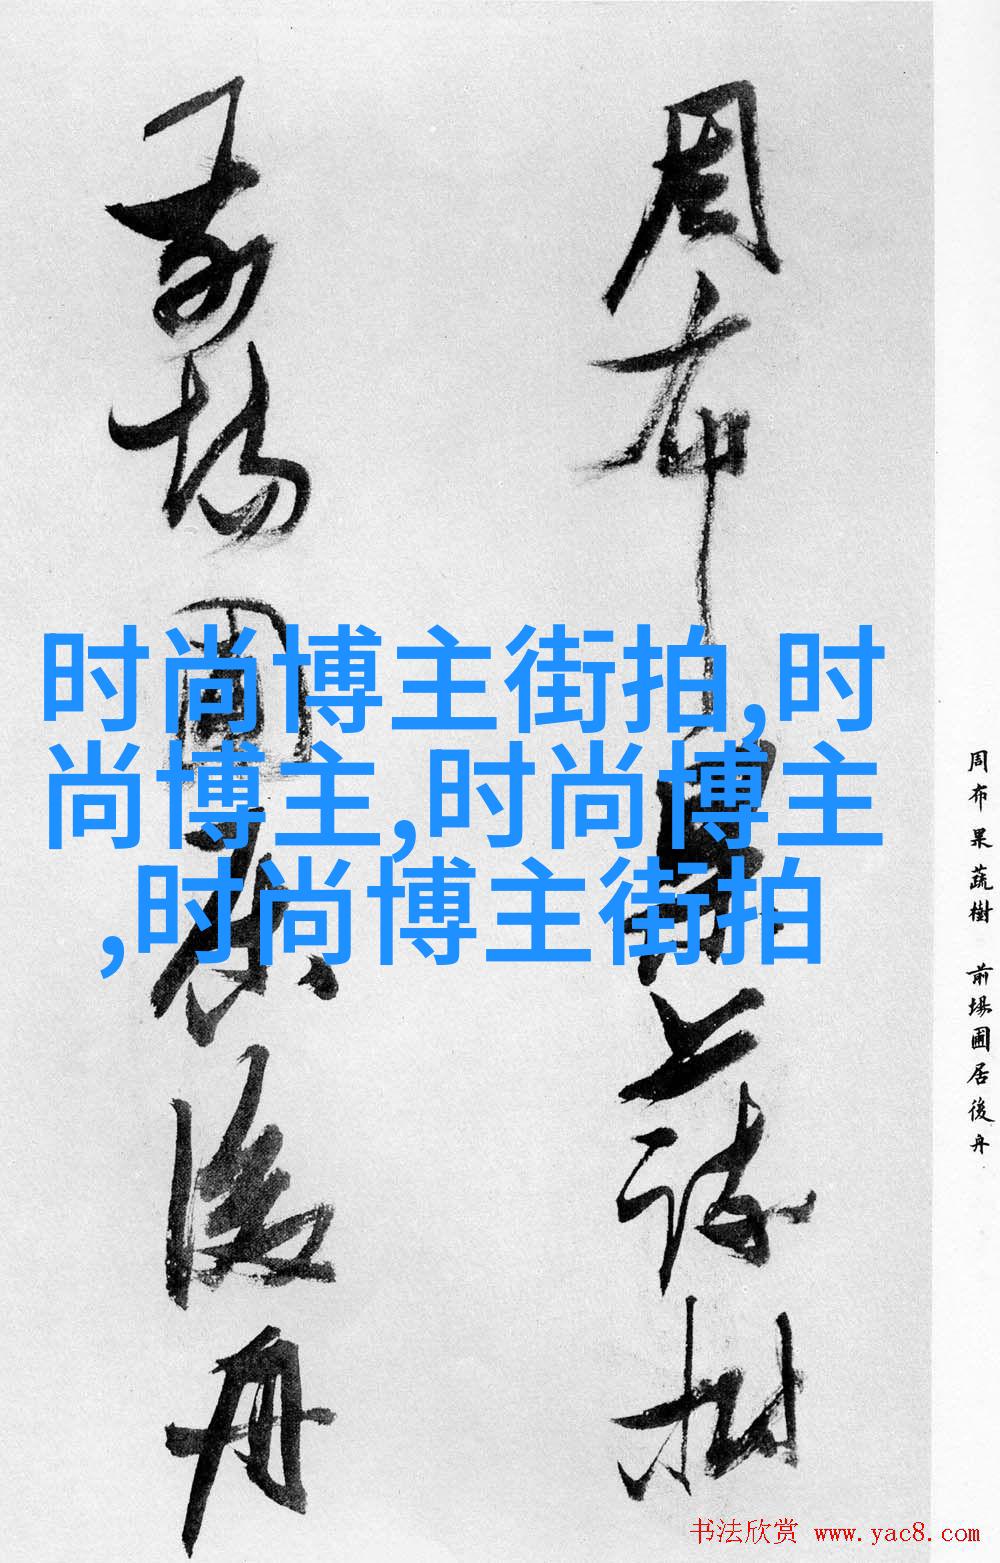 周布果蔬樹
前場圃居後舟
时尚博主街拍,时
尚博主,时尚博主
,时尚博主街拍
周布果蔬樹 前場圃居後舟
书法欣赏 www.yac8.com